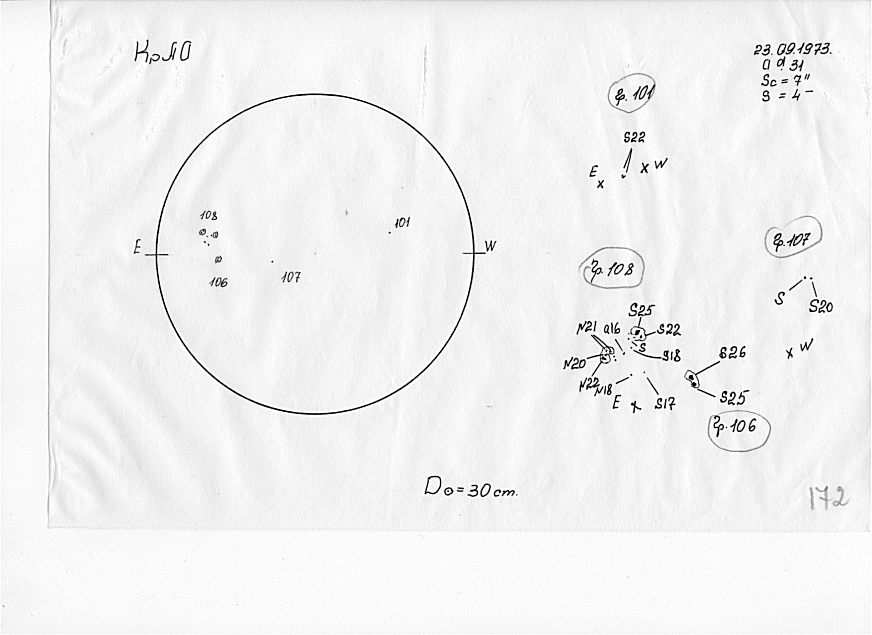 КрАО
23.09.1973.
Sc = 7"
S = 4 –
гр. 101
S22
E x
x W
108
101
E
W
106
107
гр. 107
S
S20
x W
гр. 108
S25
N21
a16
S22
S
S18
N20
N22
N18
E x
S17
S26
S25
гр. 106
D⊙ = 30 cm.
172